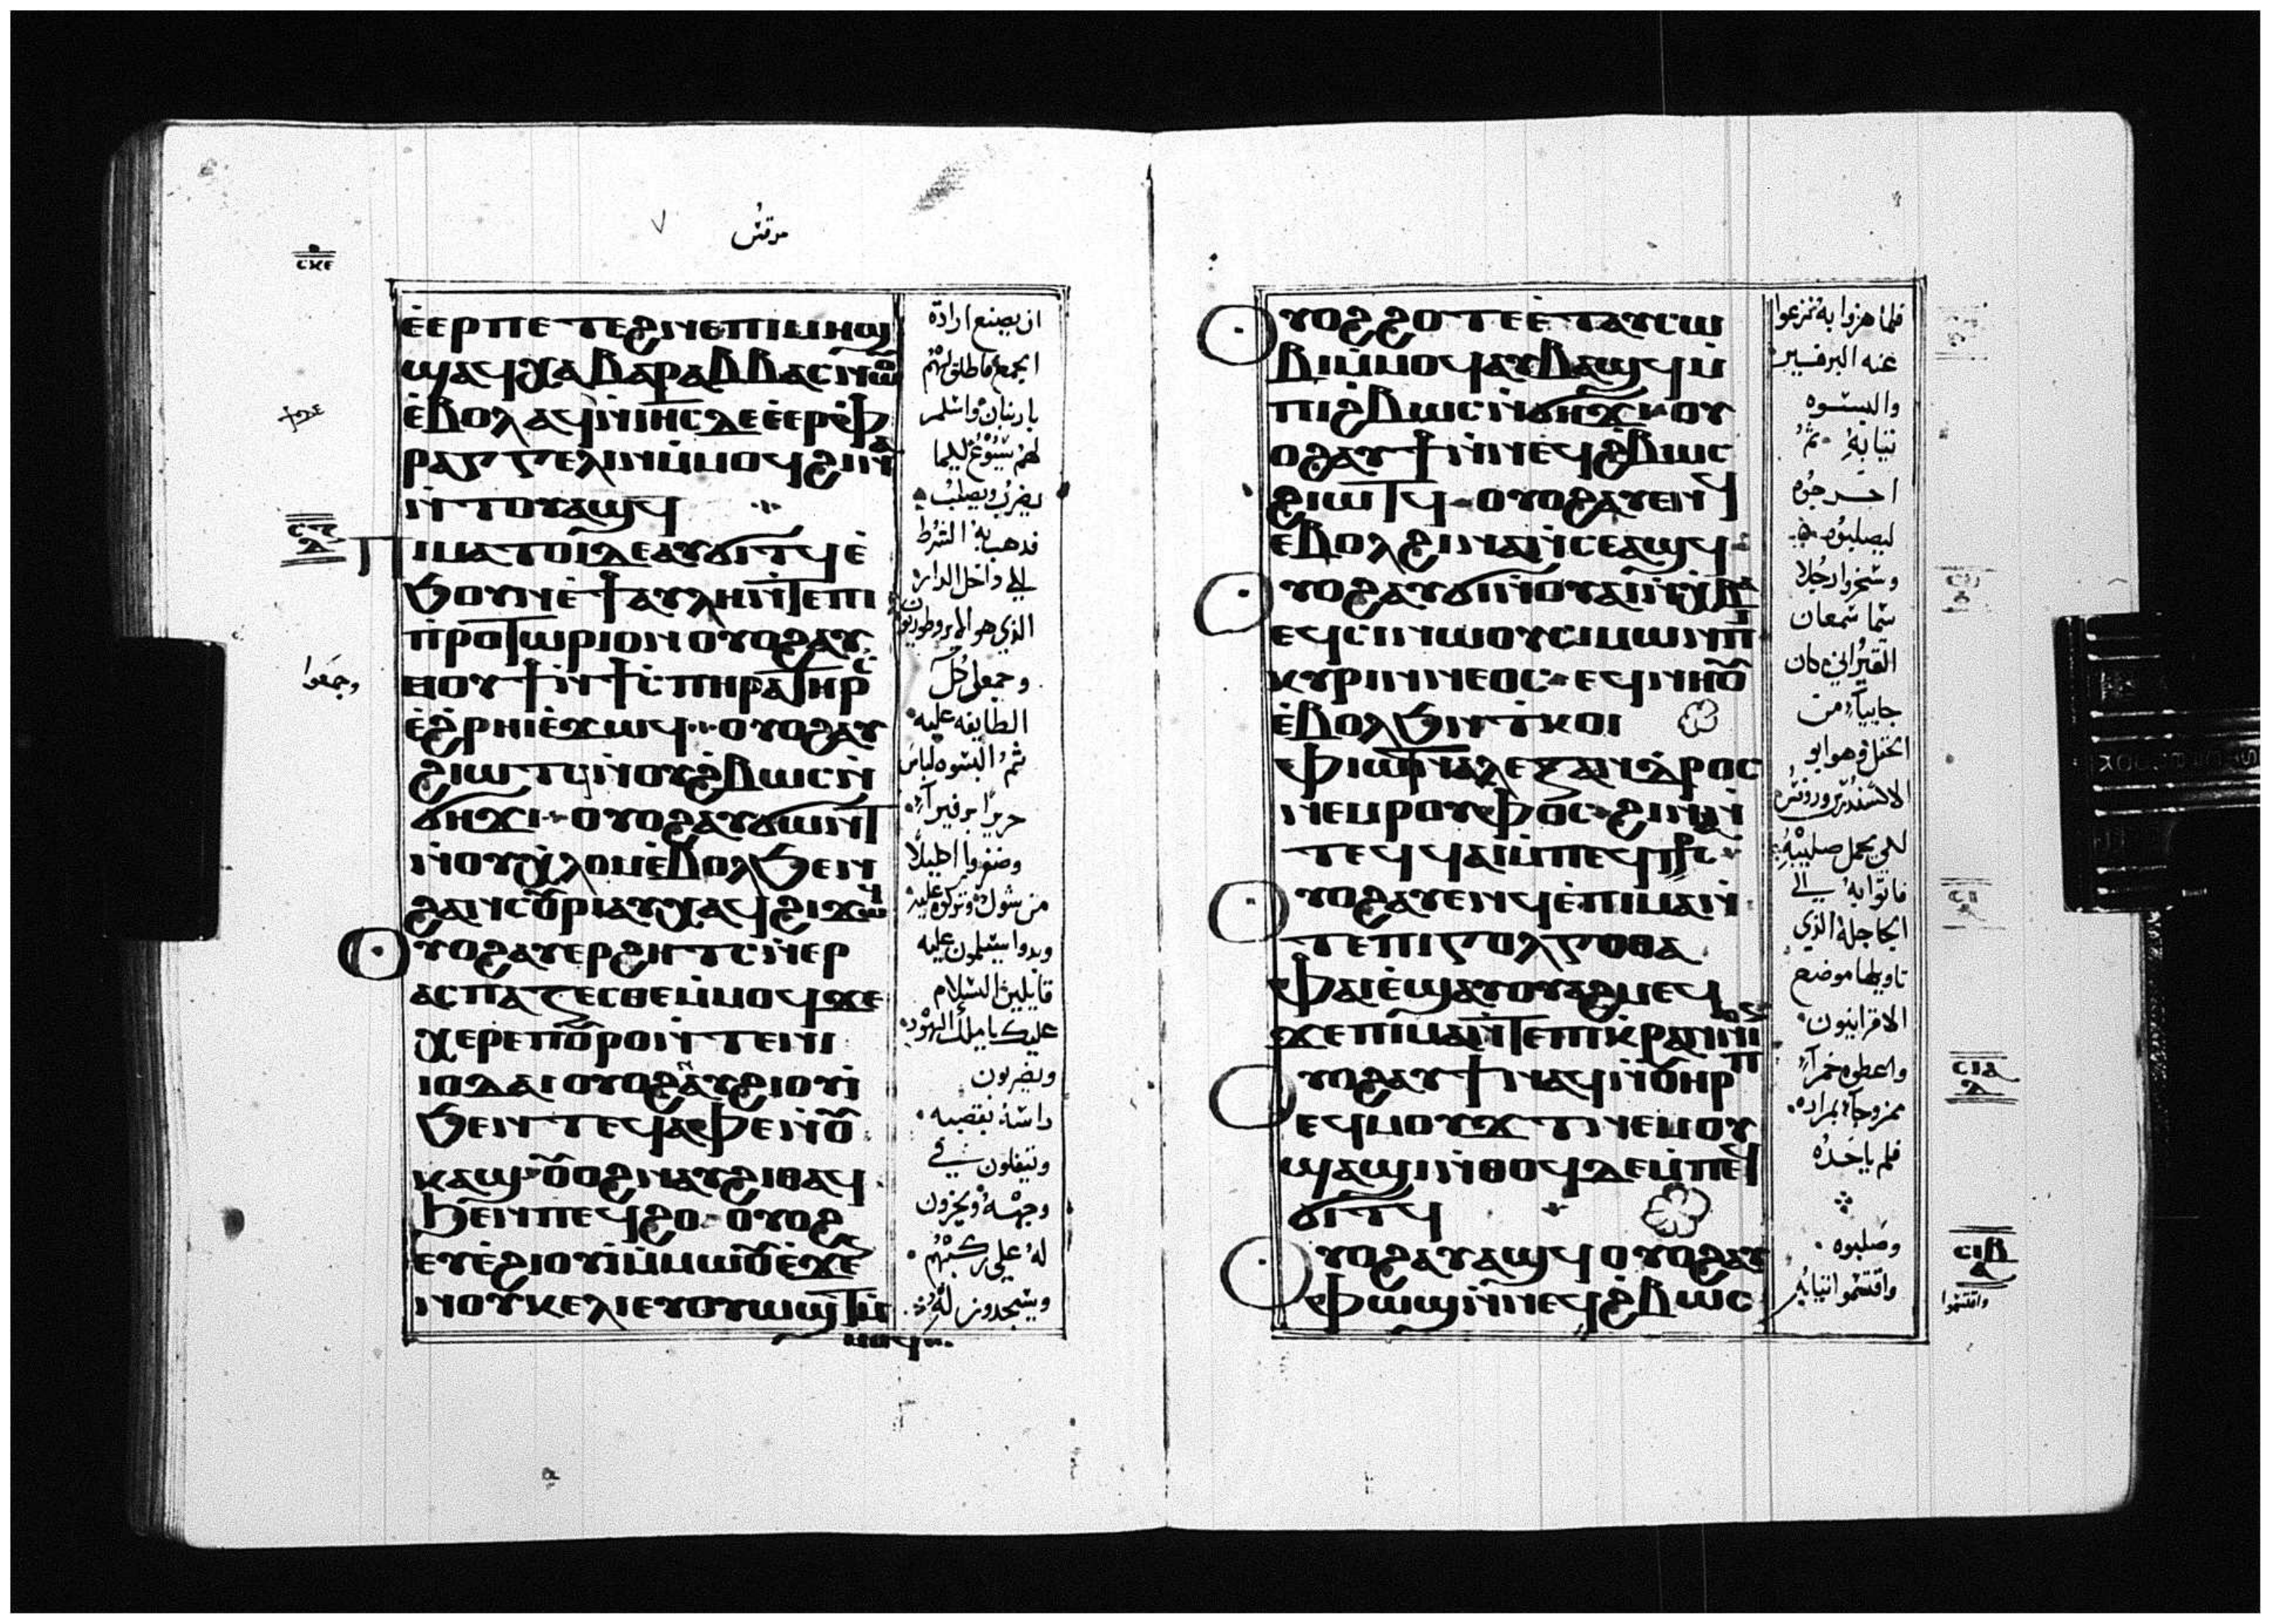 مرقس
ⲥⲕⲉ
ⲉ̀ⲉⲣⲡⲉⲧⲉϩⲛⲉⲡⲓⲙⲏϣ
ϣⲁϥⲭⲁⲃⲁⲣⲁⲃⲃⲁⲥⲛⲱⲟⲩ
ⲉ̀ⲃⲟⲗⲁϥϯⲛ̀ⲓⲏⲥⲇⲉⲉ̀ⲉⲣⲫ
ⲣⲁⲅⲅⲉⲗⲗⲓⲛⲙ̀ⲙⲟϥϩⲓⲛⲁ
ⲛ̀ⲧⲟⲩⲁϣϥ
ⲡⲓⲙⲁⲧⲟⲓⲇⲉⲁⲩϭⲓⲧϥⲉ̀
ϧⲟⲩⲛⲉ̀ϯⲁⲩⲗⲏⲛ̀ⲧⲉⲡⲓ
ⲡ̀ⲣⲟⲧⲱⲣⲓⲟⲛⲟⲩⲟϩⲁⲩ
ⲙⲟⲩϯⲛ̀ϯⲥ̀ⲡⲏⲣⲁⲧⲏⲣⲥ
ⲉ̀ϩ̀ⲣⲏⲓⲉ̀ϫⲱϥ ⲟⲩⲟϩⲁⲩ
ϩⲓⲱⲧϥⲛ̀ⲟⲩϩ̀ⲃⲱⲥⲛ̀
ϭⲏϫⲓ ⲟⲩⲟϩⲁⲩϭⲱⲛⲧ
ⲛ̀ⲟⲩⲭ̀ⲗⲟⲙⲉ̀ⲃⲟⲗϧⲉⲛ
ϩⲁⲛⲥⲟⲩⲣⲓⲁⲩⲭⲁϥϩⲓϫⲱϥ
ⲟⲩⲟϩⲁⲩⲉⲣϩⲏⲧⲥⲛ̀ⲉⲣ
ⲁⲥⲡⲁⲍⲉⲥⲑⲉⲙ̀ⲙⲟϥϫⲉ
ⲭⲉⲣⲉⲡⲟⲩⲣⲟⲛ̀ⲧⲉⲛⲓ
ⲓⲟⲩⲇⲁⲓ ⲟⲩⲟϩⲛⲁⲩϩⲓⲟⲩⲓ̀
ϧⲉⲛⲧⲉϥⲁⲫⲉⲛ̀ⲟⲩ
ⲕⲁϣ ⲟⲩⲟϩⲛⲁⲩϩⲓⲑⲁϥ
ϧⲉⲛⲡⲉϥϩⲟ ⲟⲩⲟϩ
ⲉⲩⲉ̀ϩⲓⲟⲩⲓ̀ⲙ̀ⲙⲱⲟⲩⲉ̀ϫⲉⲛ
ⲛⲟⲩⲕⲉⲗⲓⲉⲩⲟⲩⲱϣⲧⲙ̀
ⲙⲟϥ
ان يصنع ارادة
الجمع فاطلق لهم
باربنان واسلم
لهم يسوع ليما
يضرب ويصلب
فذهب به الشرط
الي داخل الدار
الذي هو الابروطوريون
وجمعوا كل
وجمعوا
الطايفه عليه
ثم البسوه لباس
حريرا برفيرا
وضفروا اكليلا
من شوك وتركوه عليه
وبدوا يسلمون عليه
قايلين السلام
عليك يا ملك اليهود
ويضربون
راسه بقصبه
ويتفلون في
وجهه ويخرون
له علي ركبهم
ويسجدون له
ⲟⲩⲟϩϩⲟⲧⲉⲉ̀ⲧⲁⲩⲥⲱ
ⲃⲓⲙ̀ⲙⲟϥⲁⲩⲃⲁϣϥⲙ̀
ⲡⲓϩ̀ⲃⲱⲥⲛ̀ϭⲏϫⲓⲟⲩ
ⲟϩⲁⲩϯⲛ̀ⲛⲉϥϩ̀ⲃⲱⲥ
ϩⲓⲱⲧϥ ⲟⲩⲟϩⲁⲩⲉⲛϥ
ⲉ̀ⲃⲟⲗϩⲓⲛⲁⲛ̀ⲥⲉⲁϣϥ
ⲟⲩⲟϩⲁⲩϭⲓⲛ̀ⲟⲩⲁⲓⲛ̀ⲭ̀ⲃⲁ
ⲉϥⲥⲓⲛⲓⲱⲟⲩⲥⲓⲙⲱⲛⲡⲓ
ⲕⲩⲣⲓⲛⲛⲉⲟⲥ ⲉϥⲛⲏⲟⲩ
ⲉ̀ⲃⲟⲗϧⲉⲛⲧ̀ⲕⲟⲓ
ⲫⲓⲱⲧⲛ̀ⲁⲗⲉⲝⲁⲛⲇⲣⲟⲥ
ⲛⲉⲙⲣⲟⲩⲫⲟⲥ ϩⲓⲛⲁⲛ̀
ⲧⲉϥϥⲁⲓⲙ̀ⲡⲉϥⲥ̀ⲧⲥ
ⲟⲩⲟϩⲁⲩⲉⲛϥⲉ̀ⲡⲓⲙⲁⲛ̀
ⲧⲉⲡⲓⲅⲟⲗⲅⲟⲑⲁ
ⲫⲁⲓⲉ̀ϣⲁⲩⲟⲩⲁϩⲙⲉϥ
ϫⲉⲡⲓⲙⲁⲛ̀ⲧⲉⲡⲓⲕ̀ⲣⲁⲛⲓⲟⲛ
ⲟⲩⲟϩⲁⲩϯⲛⲁϥⲛ̀ⲟⲩⲏⲣⲡ
ⲉϥⲙⲟⲩϫⲧⲛⲉⲙⲟⲩ
ϣⲁϣⲓⲛ̀ⲑⲟϥⲇⲉⲙ̀ⲡⲉϥ
ϭⲓⲧϥ
ⲟⲩⲟϩⲁⲩⲁϣϥ ⲟⲩⲟϩⲁⲩ
ⲫⲱϣⲛ̀ⲛⲉϥϩ̀ⲃⲱⲥ
فلما هزوا به نزعوا
عنه البرفير
والبسوه
ثيابه ثم
اخرجوه
ليصلبوه
وسخروا رجلا
شما شمعان
القيراني كان
جاييا من
الحقل وهو ابو
الاكسندرس وروفس
لكي يحمل صليبه
فاتوا به الي
الجاجلة الذي
تاويلها موضع
الاقرانيون
واعطوه خمرا
ممزوجا بمراره
فلم ياخذه
وصلبوه
واقتسموا ثيابه
ⲥⲓⲁ
ⲥⲓⲃ
واقتسموا